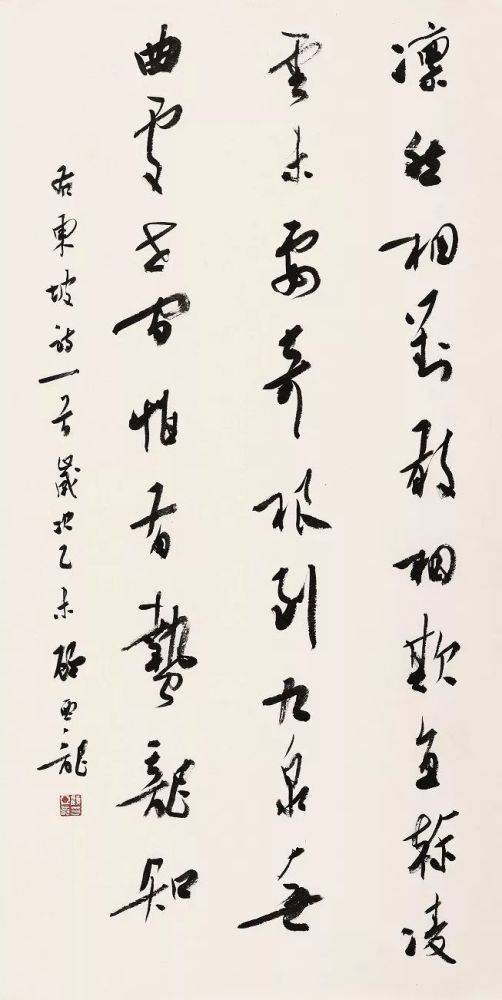 凜然相對敢相欺直幹凌
雲未要奇根到九泉無
曲處世間惟有蟄龍知
右東坡詩一首歲乙未龍